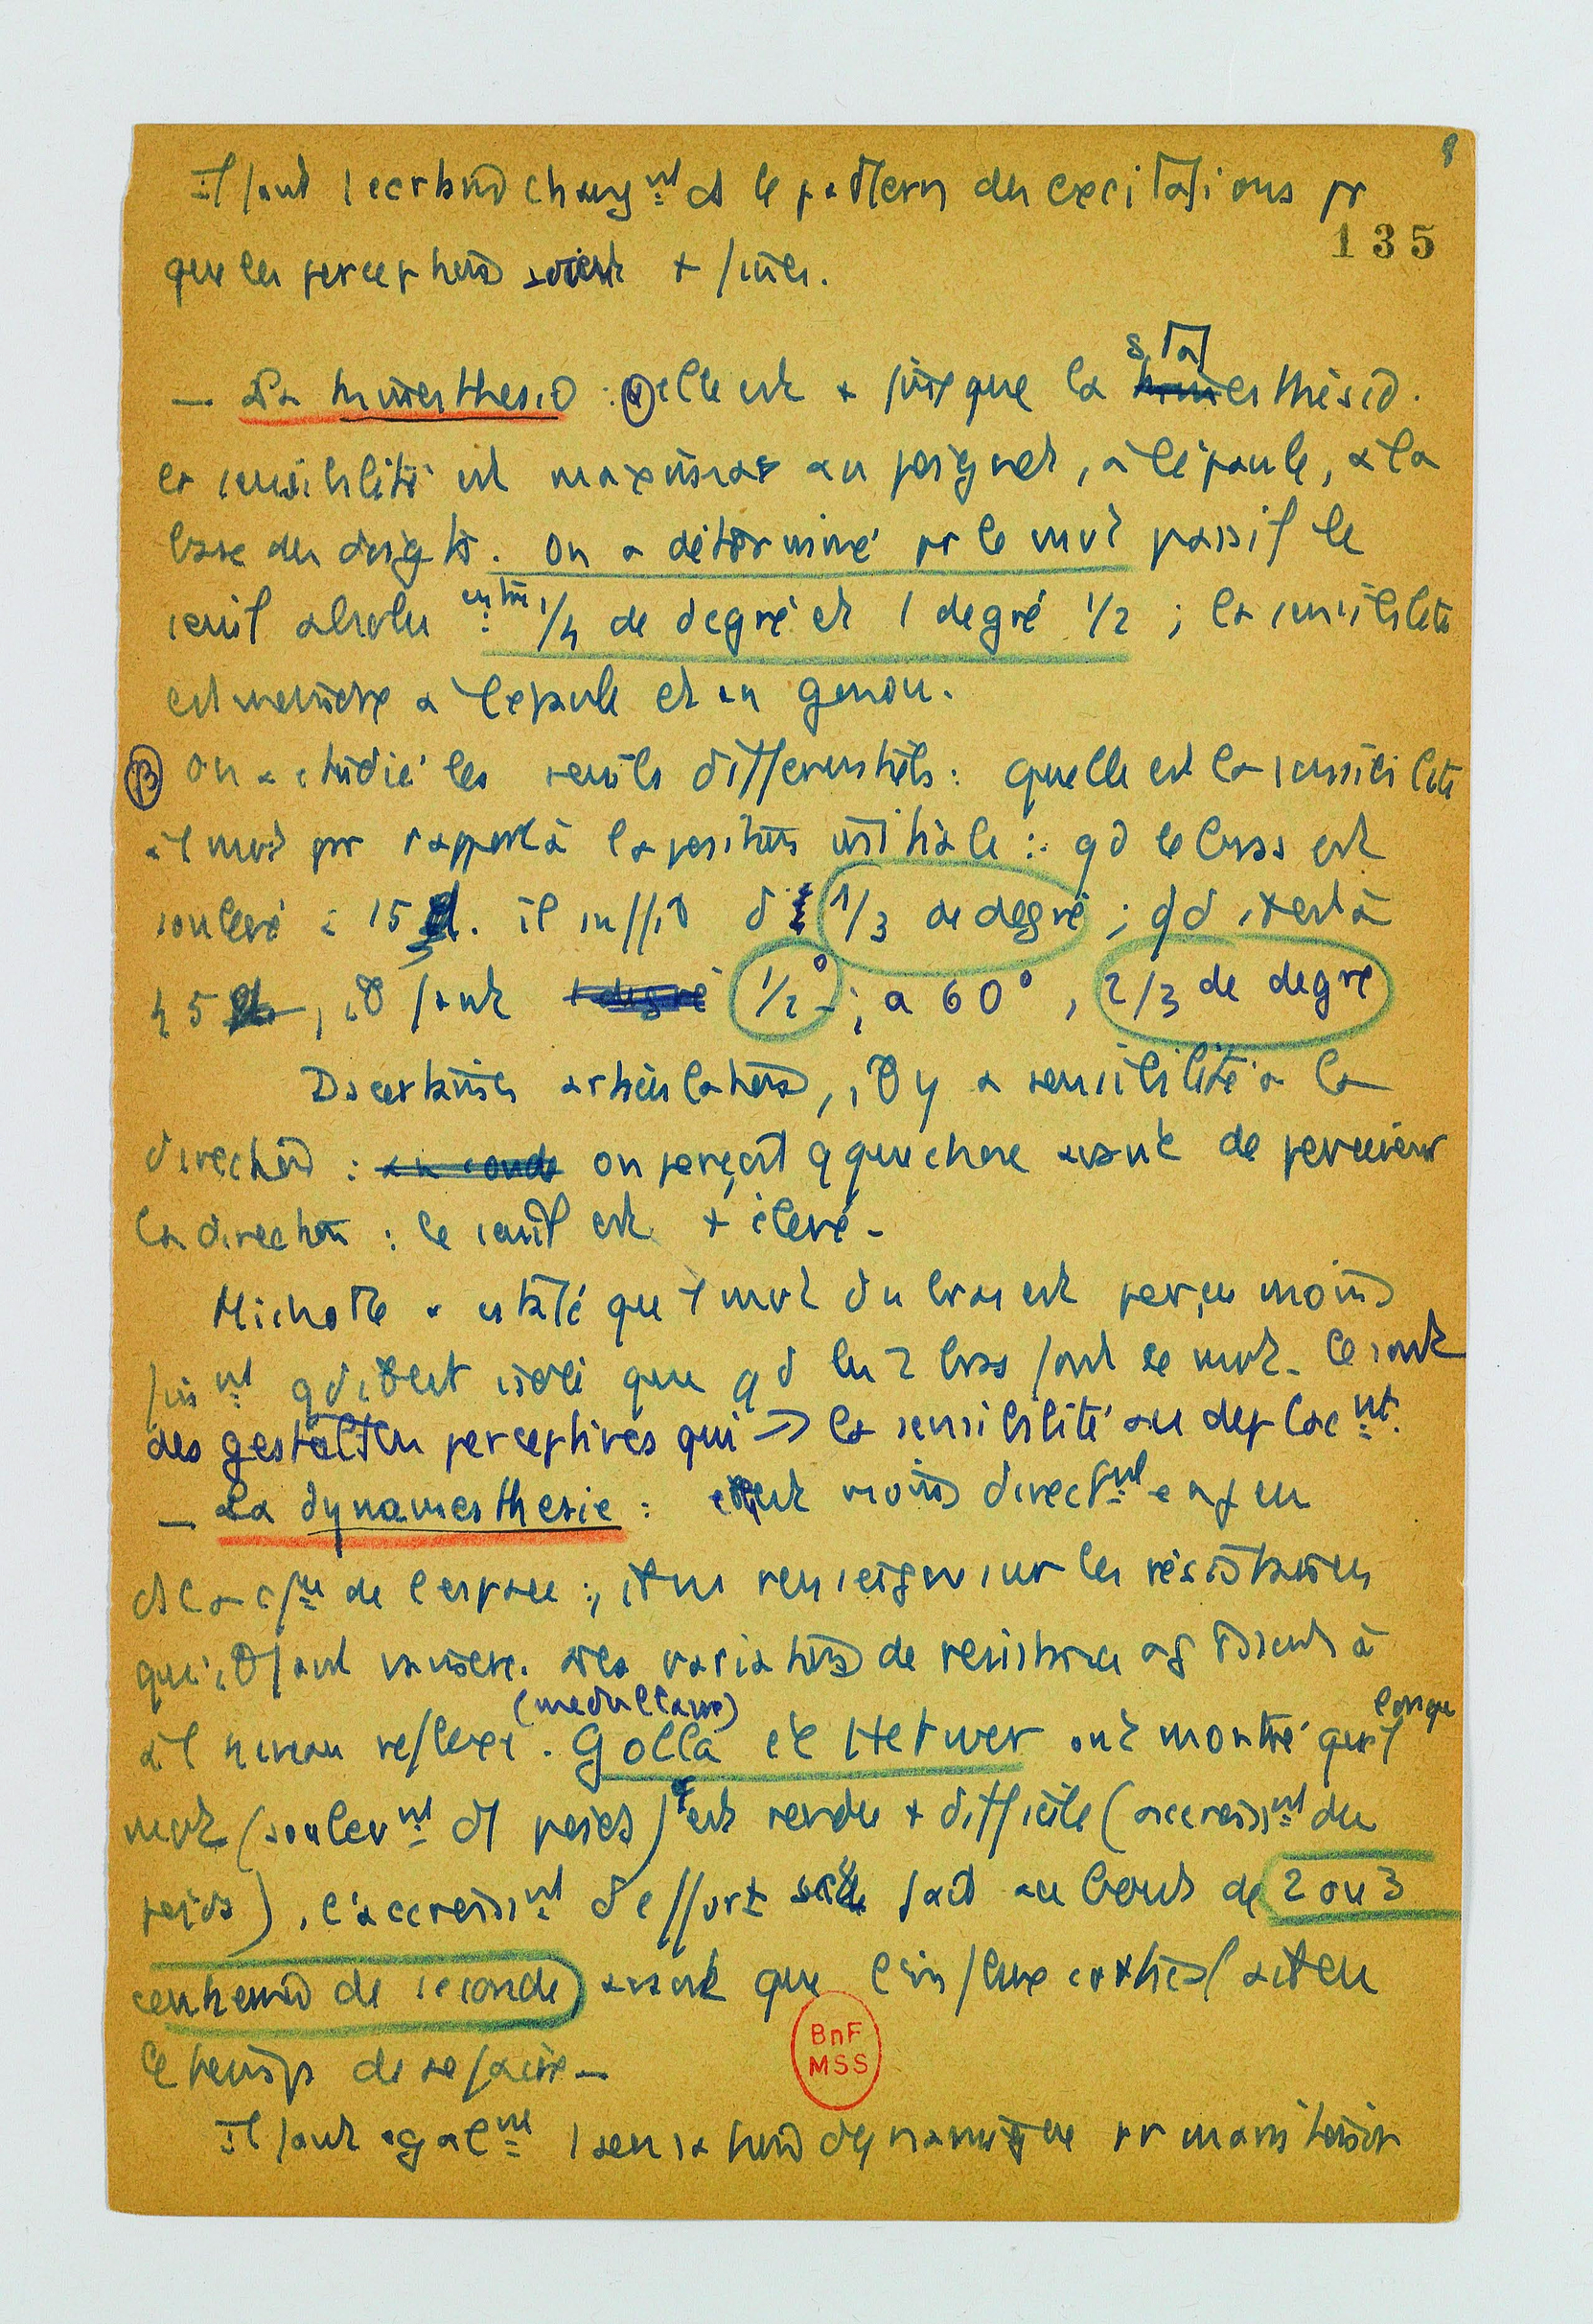 8
Il faut 1 certain chang^nt ds le pattern des excitations pr
135
que les perceptions soient + fines.
- La kinesthesie : α elle est + fine que la statesthésie.
la sensibilité est maxima au poignet, à l'épaule, à la
base des doigts. On a déterminé pr le mvt passif le
seuil absolu entre : 1/4 de degré et 1 degré 1/2 ; la sensibilité
est meilleure a l'epaule et au genou.
β On a étudié les seuils differentiels : quelle est la sensibilité
à 1 mvt par rapport à la position initiale : qd le bras est
soulevé à 15°. il suffit d' 1/3 de degré ; qd il est à
45°, il faut 1 degré 1/2° ; a 60°, 2/3 de degré
Ds certaines articulations, il y a sensibilité a la
direction : au coude on perçoit qque chose avant de percevoir
la direction : le seuil est + élevé -
Michotte a constaté que 1 mvt du bras est perçu moins
fin^nt qd il est isolé que qd les 2 bras font le mvt. Ce sont
des gestalten perceptives qui → la sensibilité au deplac^nt.
- La dynamesthesie : elle est moins direct^nt en jeu
ds la de l'espace ; il ns renseigne sur les résistances
qu'il faut vaincre. Les variations de resistance agissent à
à 1 niveau reflexe (medullaire). Golla et Hetwer ont montré que lorsque 1
mvt (soulev^nt d'1 poids) est rendu + difficile (accroiss^nt du
poids), l'accroiss^nt d'effort se fait au bout de 2 ou 3
centiemes de seconde avant que l'influx cortical ait eu
le temps de se faire -
Il faut egal^nt 1 sensation dynamique pr maintenir
BnF
MSS